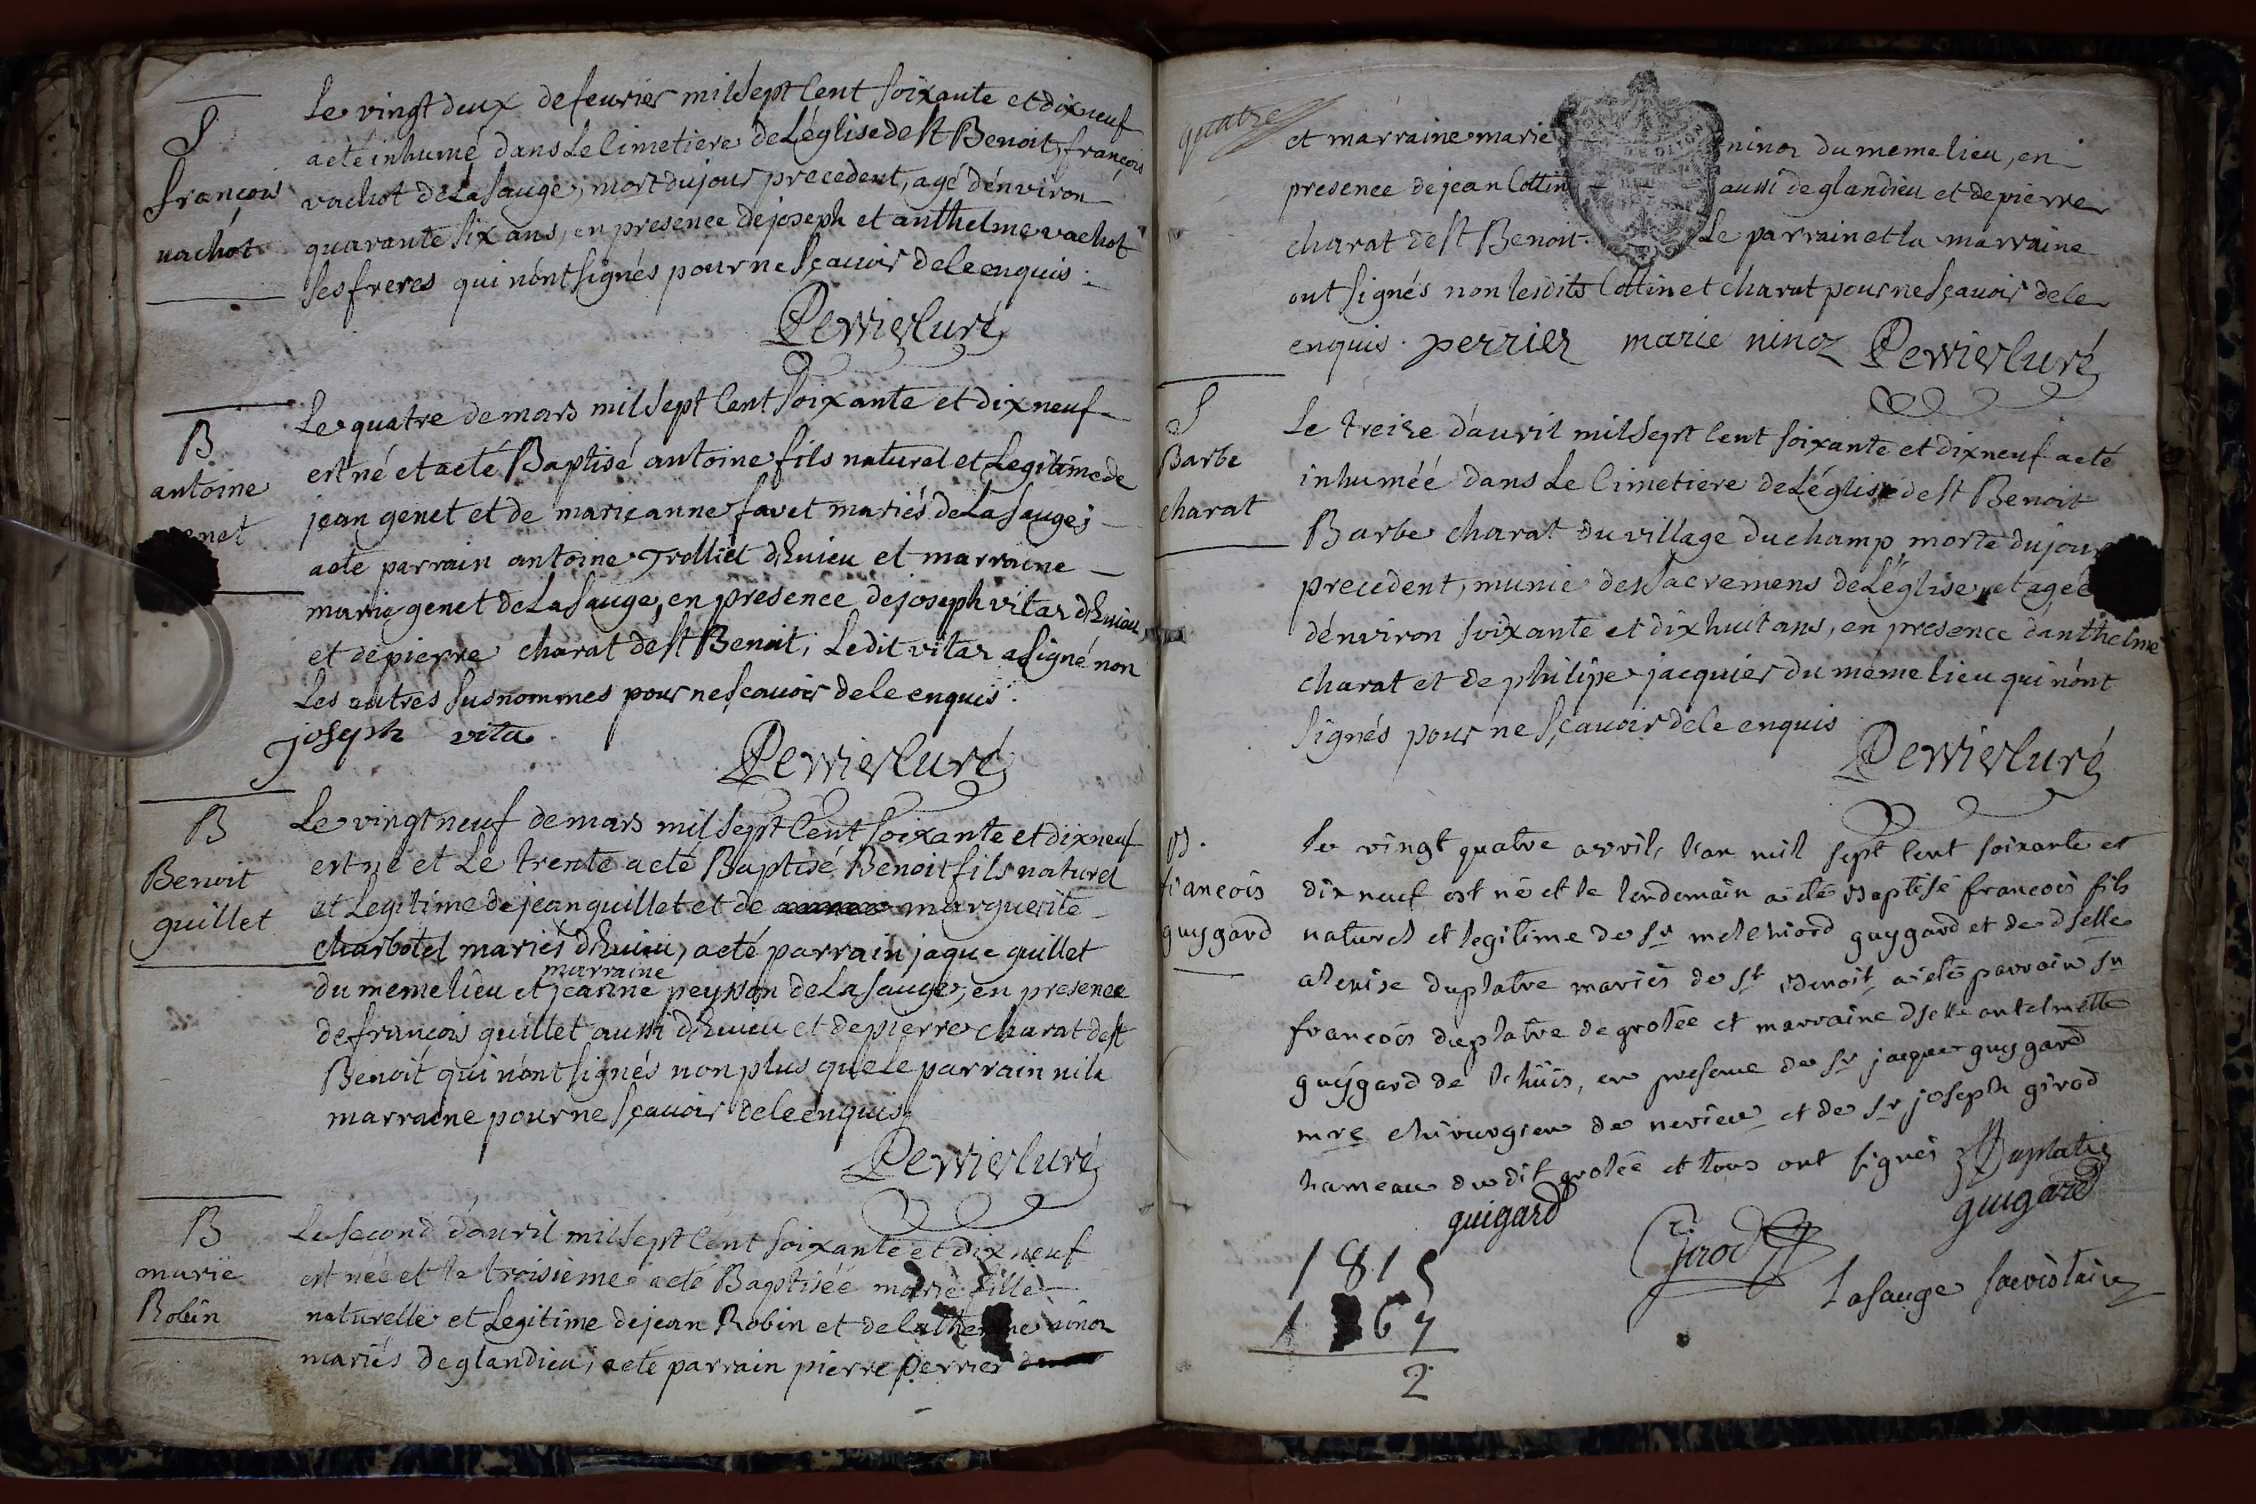 S
françois
vachot
Le vingt deux de feurier mil sept Cent soixante et dix neuf
a eté inhumé dans Le Cimetiere de L'église de st Benoit, françois
vachot de La sauge, mort du jour precedent, agé d'énviron
quarante six ans, en presence de joseph et anthelme vachot
ses freres qui n'ónt signés pour ne sçauoir de le enquis .
Perrier Curé
B
antoine
genet
Le quatre de mars mil sept Cent soixante et dix neuf
est né et a eté Baptisé antoine fils naturel et Legitime de
jean genet et de marie anne favet mariés de La sauge;
a eté parrain antoine Trolliet d'huieu et marraine
marie genet de La sauge, en presence de joseph vitaz d'huieu
et de pierre charat de st Benoit, Le dit vitaz a signé non
Les autres susnommes pour ne sçauoir de le enquis .
joseph vita
Perrier Curé
B
Benoit
guillet
Le vingt neuf de mars mil sept Cent soixante et dix neuf
est né et Le trente a eté Baptisé Benoit fils naturel
et Legitime de jean guillet et de marguerite
charbotel mariés d'huieu, a eté parrain jaque guillet
marraine
du meme lieu et jeanne peysson de La sauge, en presence
de françois guillet aussi d'huieu et de pierre charat de st
Benoit qui n'ónt signés non plus que le parrain ni la
marraine pour ne sçauoir de le enquis.
Perrier Curé
B
marie
Robin
Le second d'auril mil sept Cent soixante et dix neuf
est née et le troisieme a eté Baptisée marie fille
naturelle et Legitime de jean Robin et de Catherine ninoz
mariés de glandieu, a eté parrain pierre perrier
quatre
et marraine marie ninoz du meme lieu, en
presence de jean Cottin aussi de glandieu et de pierre
charat de st Benoit. Le parrain et la marraine
ont signés non lesdits Cottin et charat pour ne sçauoir de le
enquis . perrier marie ninoz Perrier Curé
S
Barbe
charat
Le treize d'auril mil sept Cent soixante et dix neuf a eté
inhuméé dans Le Cimetiere de L'église de st Benoit
Barbe charat du village du champ, morte du jour
precedent, munie des sacremens de L'église, et agée
d'énviron soixante et dix huit ans, en presence d'anthelme
charat et de philipe jacquier du meme lieu qui n'ónt
signés pour ne sçauoir de le enquis
Perrier Curé
B.
francois
guygard
le vingt quatre avril, l'an mil sept Cent soixante et
dix neuf est né et le lendemain a eté Baptisé francois fils
naturel et legitime de sr melchiord guygard et de dselle
duplatre mariés de st Benoit, a eté parrain sr
francois duplatre de grolée et marraine dselle antelmette
guygard de lhuis, en presence de sr jacque guygard
mre chirurgien de nerieu et de sr joseph girod
hameau du dit grolée et tous ont signés Duplatre
guigard Girod guigard
Lasauge
1815
1 67
2